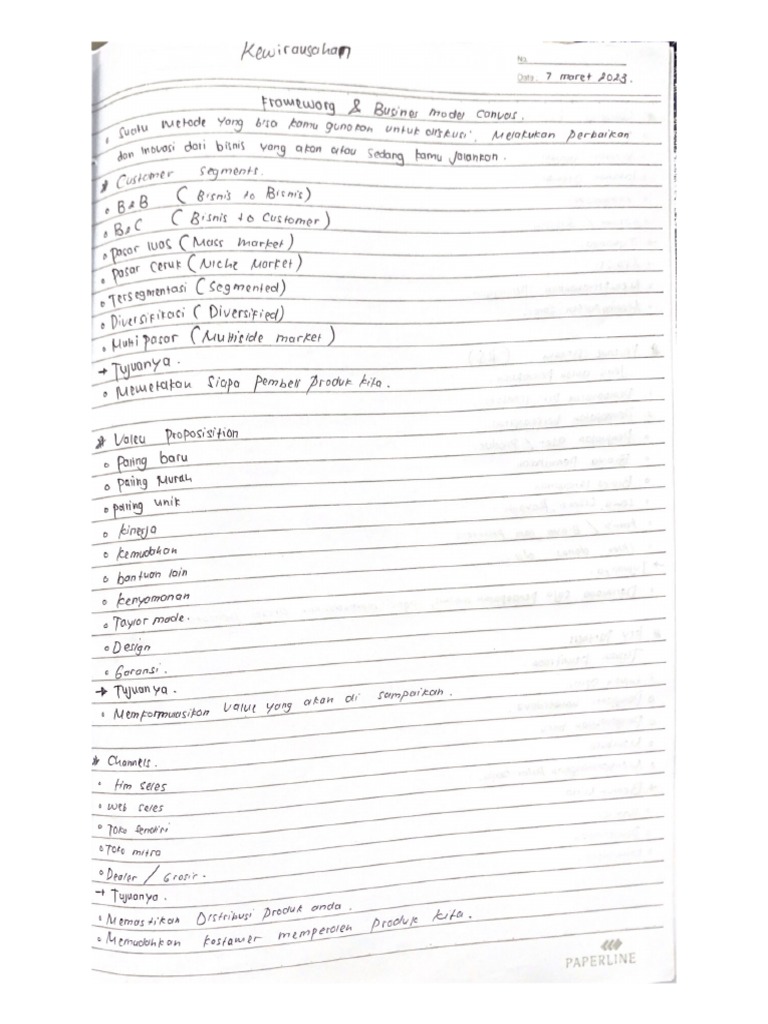 Kewirausahan
No.
Date. 7 maret 2023.
Framewory & Busines model canvas.
• Suatu metode yang bisa kamu gunakan untuk diskusi, Melakukan Perbaikan
dan inovasi dari bisnis yang akan atau Sedang kamu jalankan.
* Customer segments.
• B2B ( Bisnis to Bisnis)
• B2C ( Bisnis to Customer)
• pasar luas (Mass market)
• pasar ceruk (Niche Market)
• Tersegmentasi (Segmented)
• Diversifikasi (Diversified)
• Multi pasar (Multiside market)
→ Tujuanya.
• Memetakan Siapa Pembeli Produk kita.
* Valeu Proposisition
• Paling baru
• Paling Murah
• paling unik
• kinerja
• kemudahan
• bantuan lain
• kenyamanan
• Taylor made.
• Design
• Garansi.
→ Tujuanya.
• Memformulasikan Value yang akan di sampaikan.
* Channels.
• tim seles
• web seles
• Toko sendiri
• Toko mitra
• Dealer / Grosir.
→ Tujuanya.
• Memastikan Distribusi Produk anda.
• Memudahkan kostamer memperoleh Produk kita.
PAPERLINE